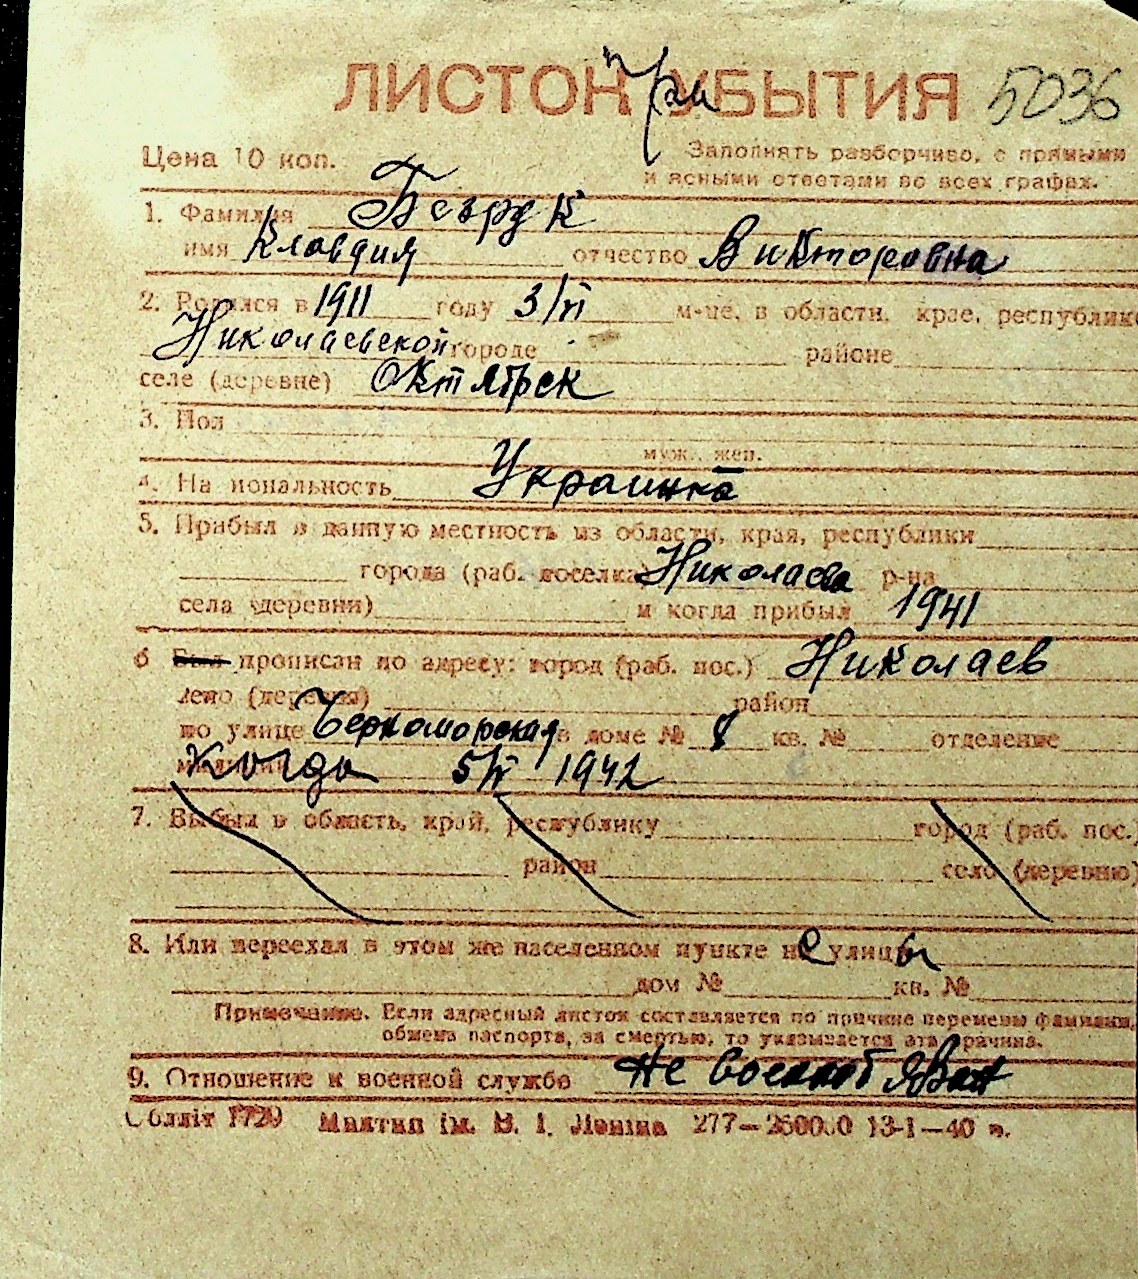 ЛИСТОК прибытия 5036
Цена 10 коп. Заполнять разборчиво, с прямыми
и ясными ответами во всех графах.
1. Фамилия
имя Клавдия отчество Викторовна
2. Родился в 1911 году 3/VI м-це, в области, крае, республике
Николаевской городе районе
селе (деревне) Октябрск
3. Пол
муж., жен.
4. Национальность Украинка
5. Прибыл в данную местность из области, края, республики
города (раб. поселка) Николаева р-на
села (деревни) и когда прибыл 1941
6 Был прописан по адресу: город (раб. пос.) Николаев
село (деревня) район
по улице Черноморская в доме № 8 кв. № отделение
милиции Когда 1942
7. Выбыл в область, край, республику город (раб. пос.)
район село (деревню)
8. Или переехал в этом же населенном пункте не улицы
дом № кв. №
Примечание. Если адресный листок составляется по причине перемены фамилии,
обмена паспорта, за смертью, то указывается эта причина.
9. Отношение к военной службе Не военнообязан
Обллiт 1729 iм. В. I. Ленiна 277—260000 13-1—40 в.